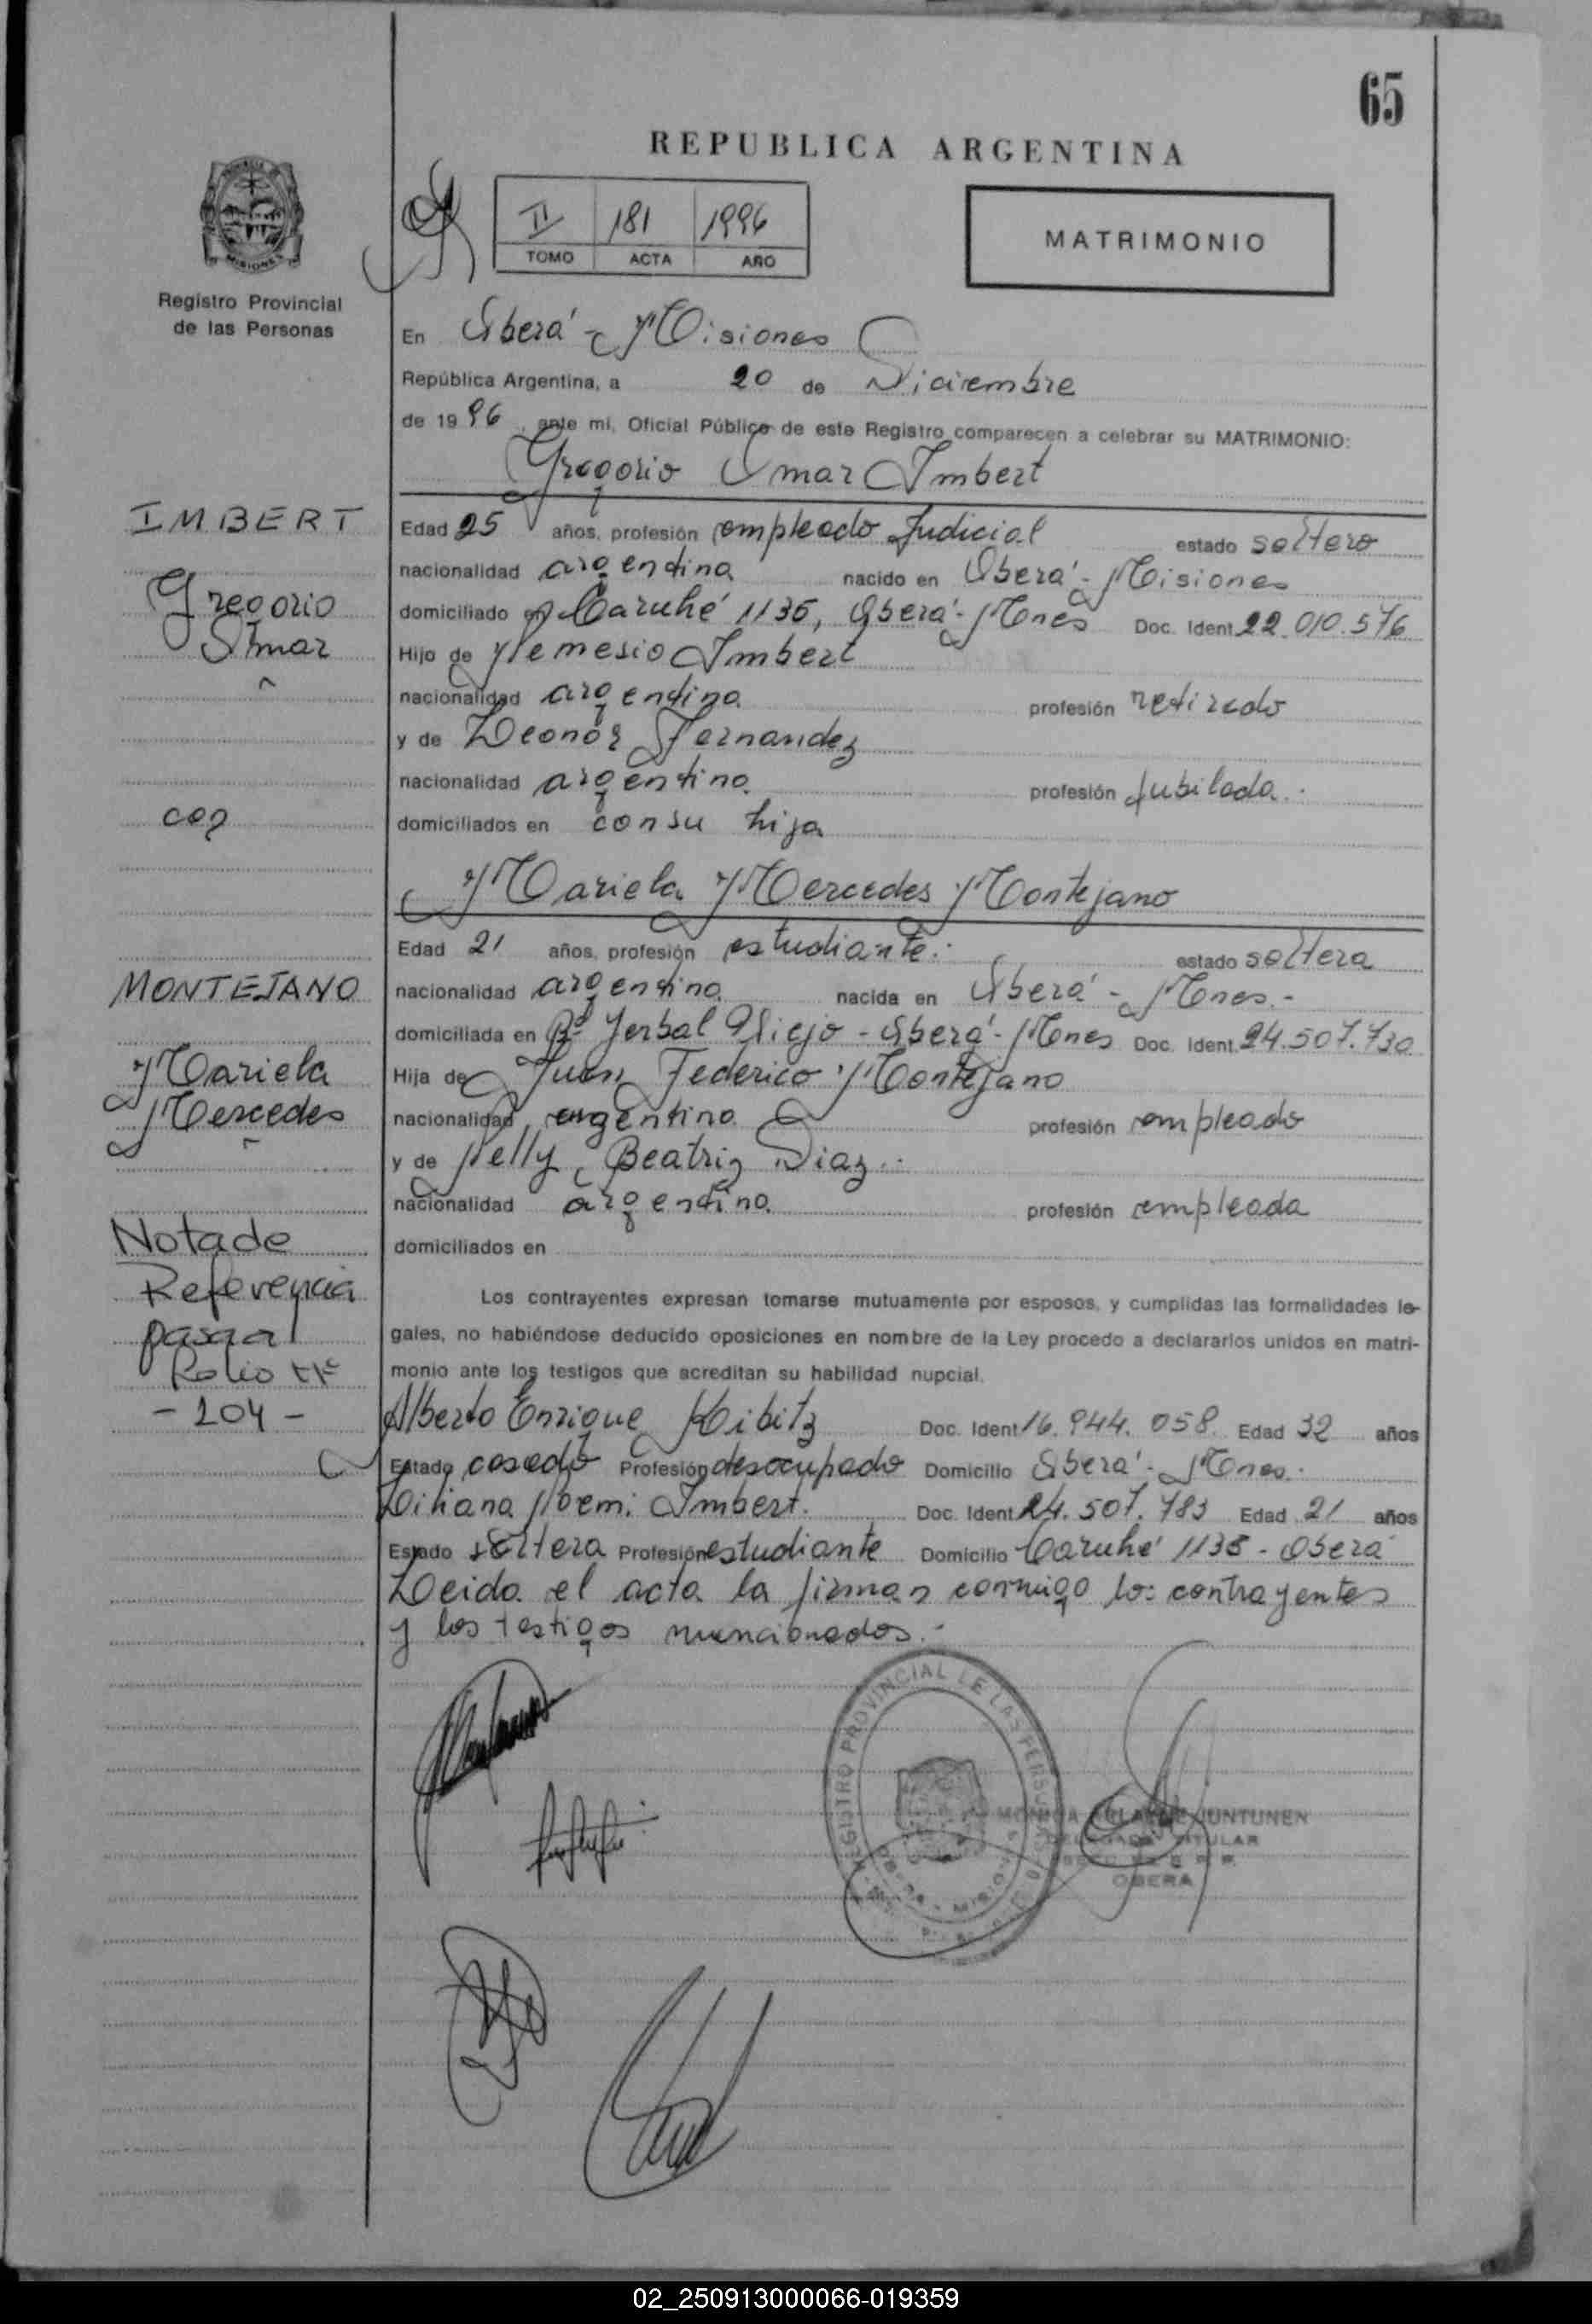 65
REPUBLICA ARGENTINA
II 181 1996
TOMO ACTA AÑO
MATRIMONIO
Registro Provincial
de las Personas
En Oberá - Misiones
República Argentina, a 20 de Diciembre
de 1996, ante mi, Oficial Público de este Registro comparecen a celebrar su MATRIMONIO:
Gregorio Omar Imbert
IMBERT
Gregorio
Omar
con
Edad 25 años, profesión empleado Judicial estado soltero
nacionalidad argentina nacido en Oberá - Misiones
domiciliado en Caruhé 1135, Oberá - Mnes Doc. Ident. 22.010.576
Hijo de Nemesio Imbert
nacionalidad argentina profesión retirado
y de Leonor Fernandez
nacionalidad argentina profesión Jubilada.
domiciliados en con su hija
Mariela Mercedes Montejano
MONTEJANO
Mariela
Mercedes
Edad 21 años, profesión estudiante. estado soltera
nacionalidad argentina nacida en Oberá - Mnes.-
domiciliada en Bº Yerbal Viejo - Oberá - Mnes Doc. Ident. 24.507.730
Hija de Juan Federico Montejano
nacionalidad argentina profesión empleado
y de Nelly Beatriz Diaz.
nacionalidad argentina profesión empleada
domiciliados en
Nota de
Referencia
pasa al
Folio Nº
- 104 -
Los contrayentes expresan tomarse mutuamente por esposos, y cumplidas las formalidades le-
gales, no habiéndose deducido oposiciones en nombre de la Ley procedo a declararlos unidos en matri-
monio ante los testigos que acreditan su habilidad nupcial.
Alberto Enrique Kibitz Doc. Ident 16.944.058. Edad 32 años
Estado casado Profesión desocupado Domicilio Oberá - Mnes.
Liliana Noemi Imbert. Doc. Ident. 24.507.783 Edad 21 años
Estado soltera Profesión estudiante Domicilio Caruhé 1135 - Oberá
Leida el acta la firman conmigo los contrayentes
y los testigos mencionados.-
REGISTRO PROVINCIAL DE LAS PERSONAS
JUNTUNEN
TITULAR
OBERA
02_250913000066-019359